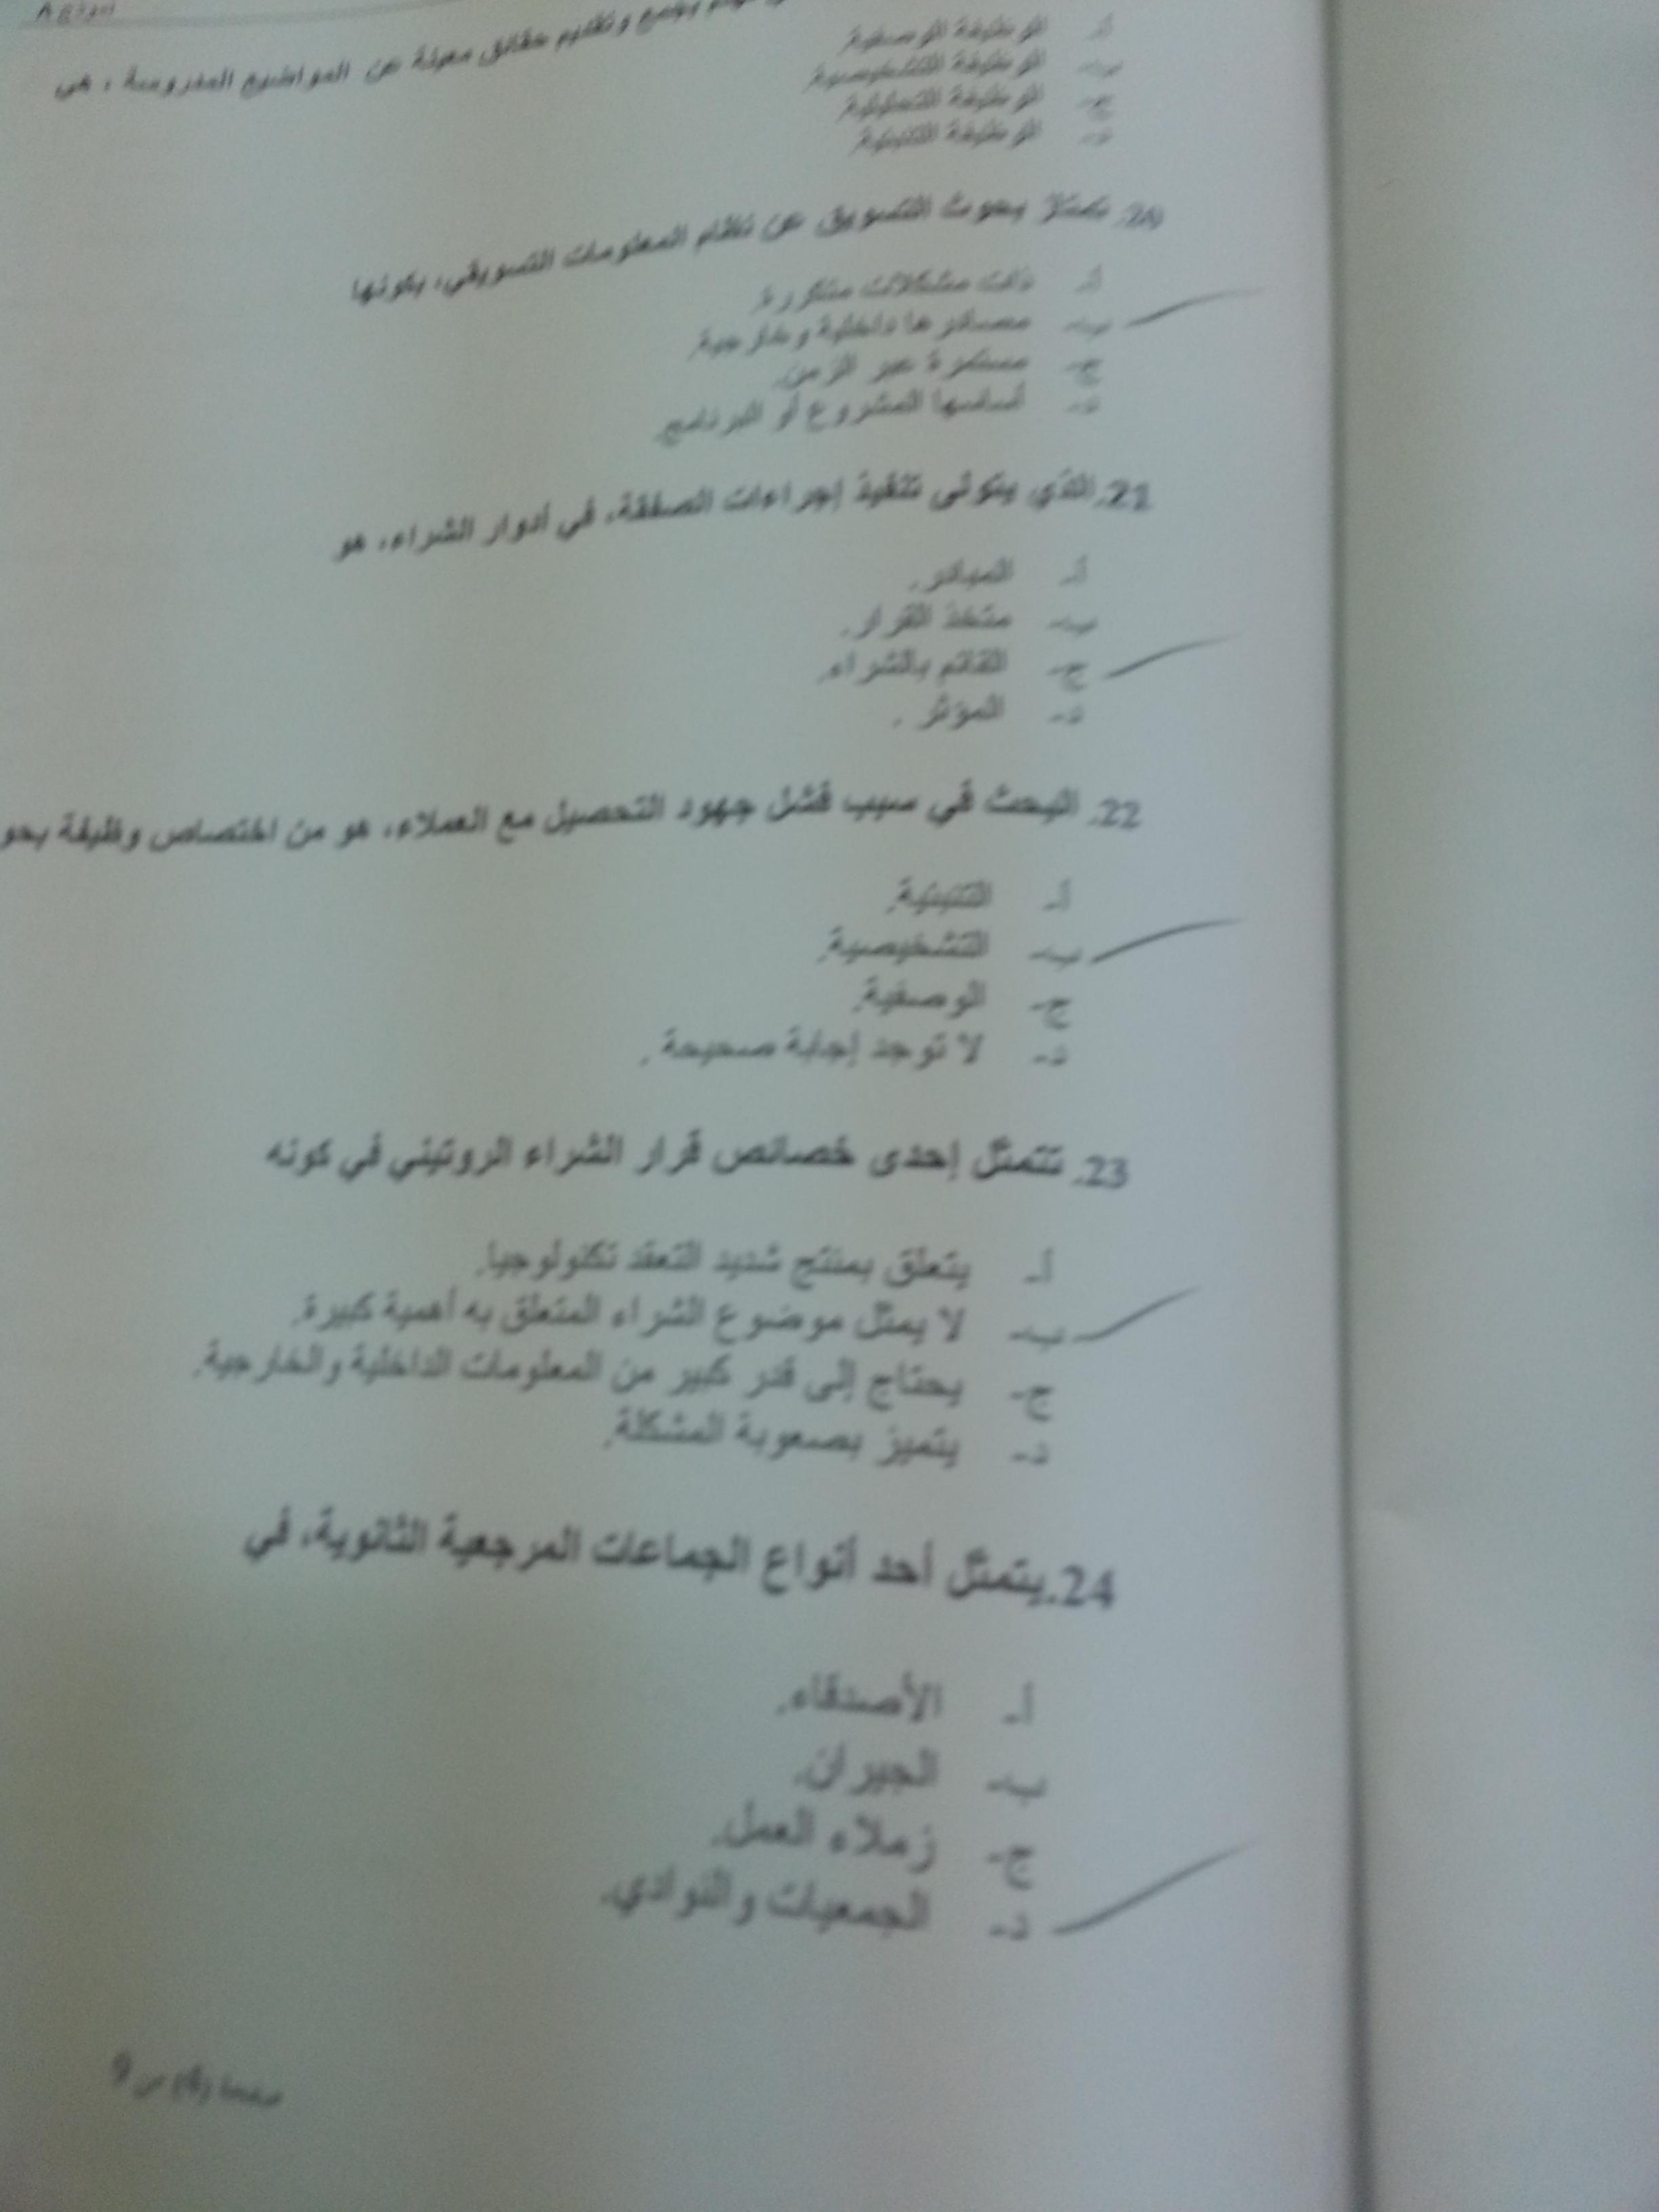 وتقديم حقائق معينة عن المواضيع المدروسة ، هي
أ- الوظيفة الوصفية
ب- الوظيفة التشخيصية
ج- الوظيفة التحليلية
د- الوظيفة التنبئية
20. تمتاز بحوث التسويق عن نظام المعلومات التسويقي، بكونها
أ- ذات مشكلات متكررة.
ب- مصادرها داخلية وخارجية.
ج- مستمرة عبر الزمن.
د- أساسها المشروع أو البرنامج.
21. الذي يتولى تنفيذ إجراءات الصفقة، في أدوار الشراء، هو
أ- المبادر.
ب- متخذ القرار.
ج- القائم بالشراء.
د- المؤثر .
22. البحث في سبب فشل جهود التحصيل مع العملاء، هو من اختصاص وظيفة بحو
أ- التنبئية.
ب- التشخيصية.
ج- الوصفية.
د- لا توجد إجابة صحيحة .
23. تتمثل إحدى خصائص قرار الشراء الروتيني في كونه
أ- يتعلق بمنتج شديد التعقد تكنولوجيا.
ب- لا يمثل موضوع الشراء المتعلق به أهمية كبيرة.
ج- يحتاج إلى قدر كبير من المعلومات الداخلية والخارجية.
د- يتميز بصعوبة المشكلة.
24. يتمثل أحد أنواع الجماعات المرجعية الثانوية، في
أ- الأصدقاء.
ب- الجيران.
ج- زملاء العمل.
د- الجمعيات والنوادي.
صفحة (6) من 9